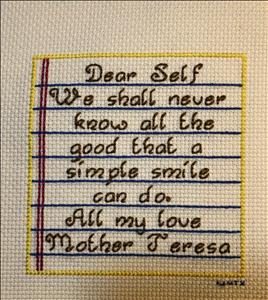 Dear Self
We shall never
know all the
good that a
simple smile
can do.
All my love
Mother Teresa